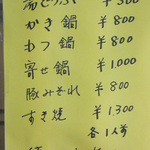 湯どうふ ¥500
かき鍋 ¥800
もつ鍋 ¥800
寄せ鍋 ¥1,000
豚みぞれ ¥800
すき焼 ¥1,300
各1人前